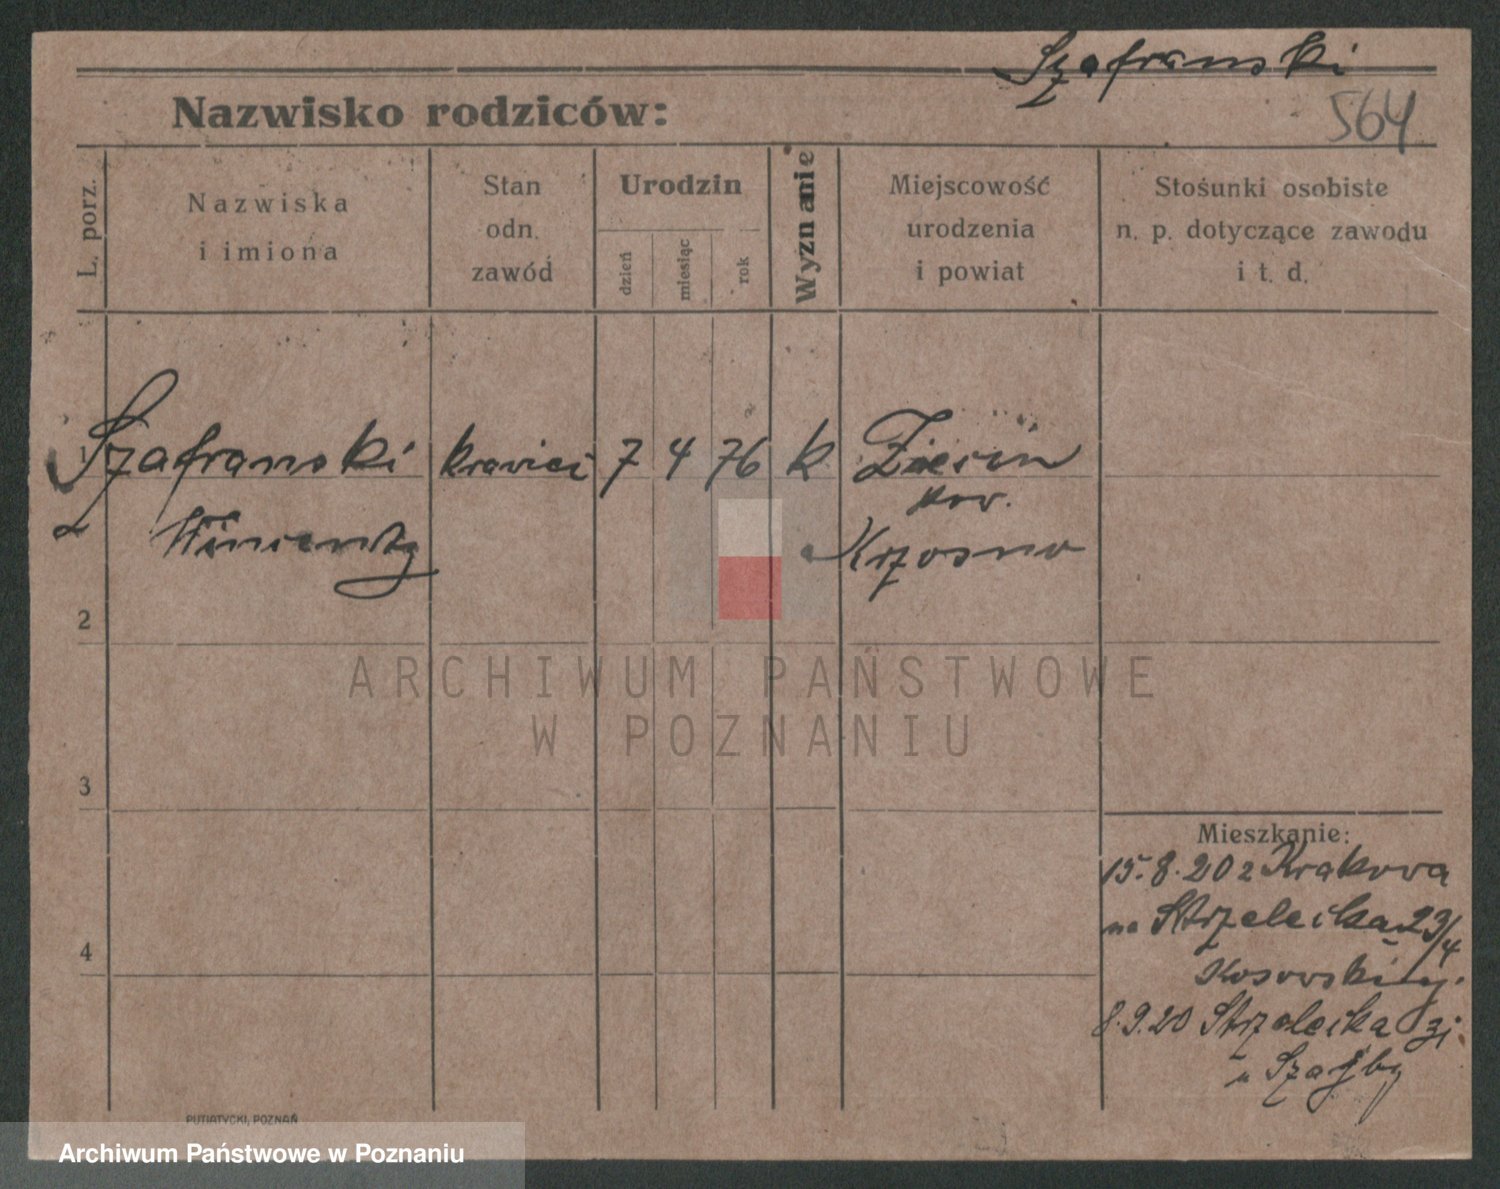 Szafranski
Nazwisko rodziców:
564
L. porz.
Nazwiska
i imiona
Stan
odn.
zawód
Urodzin
dzień
miesiąc
rok
Wyznanie
Miejscowość
urodzenia
i powiat
Stosunki osobiste
n. p. dotyczące zawodu
i t. d.
1 Szafranski krawiec 7 4 76 k
pow.
Krosno
2
ARCHIWUM PAŃSTWOWE
W POZNANIU
3
Mieszkanie:
15.8.20 z Krakowa
na Strzelecka 23/4
4
8.9.20 Strzelecka 31
PUTIATYCKI, POZNAŃ
Archiwum Państwowe w Poznaniu